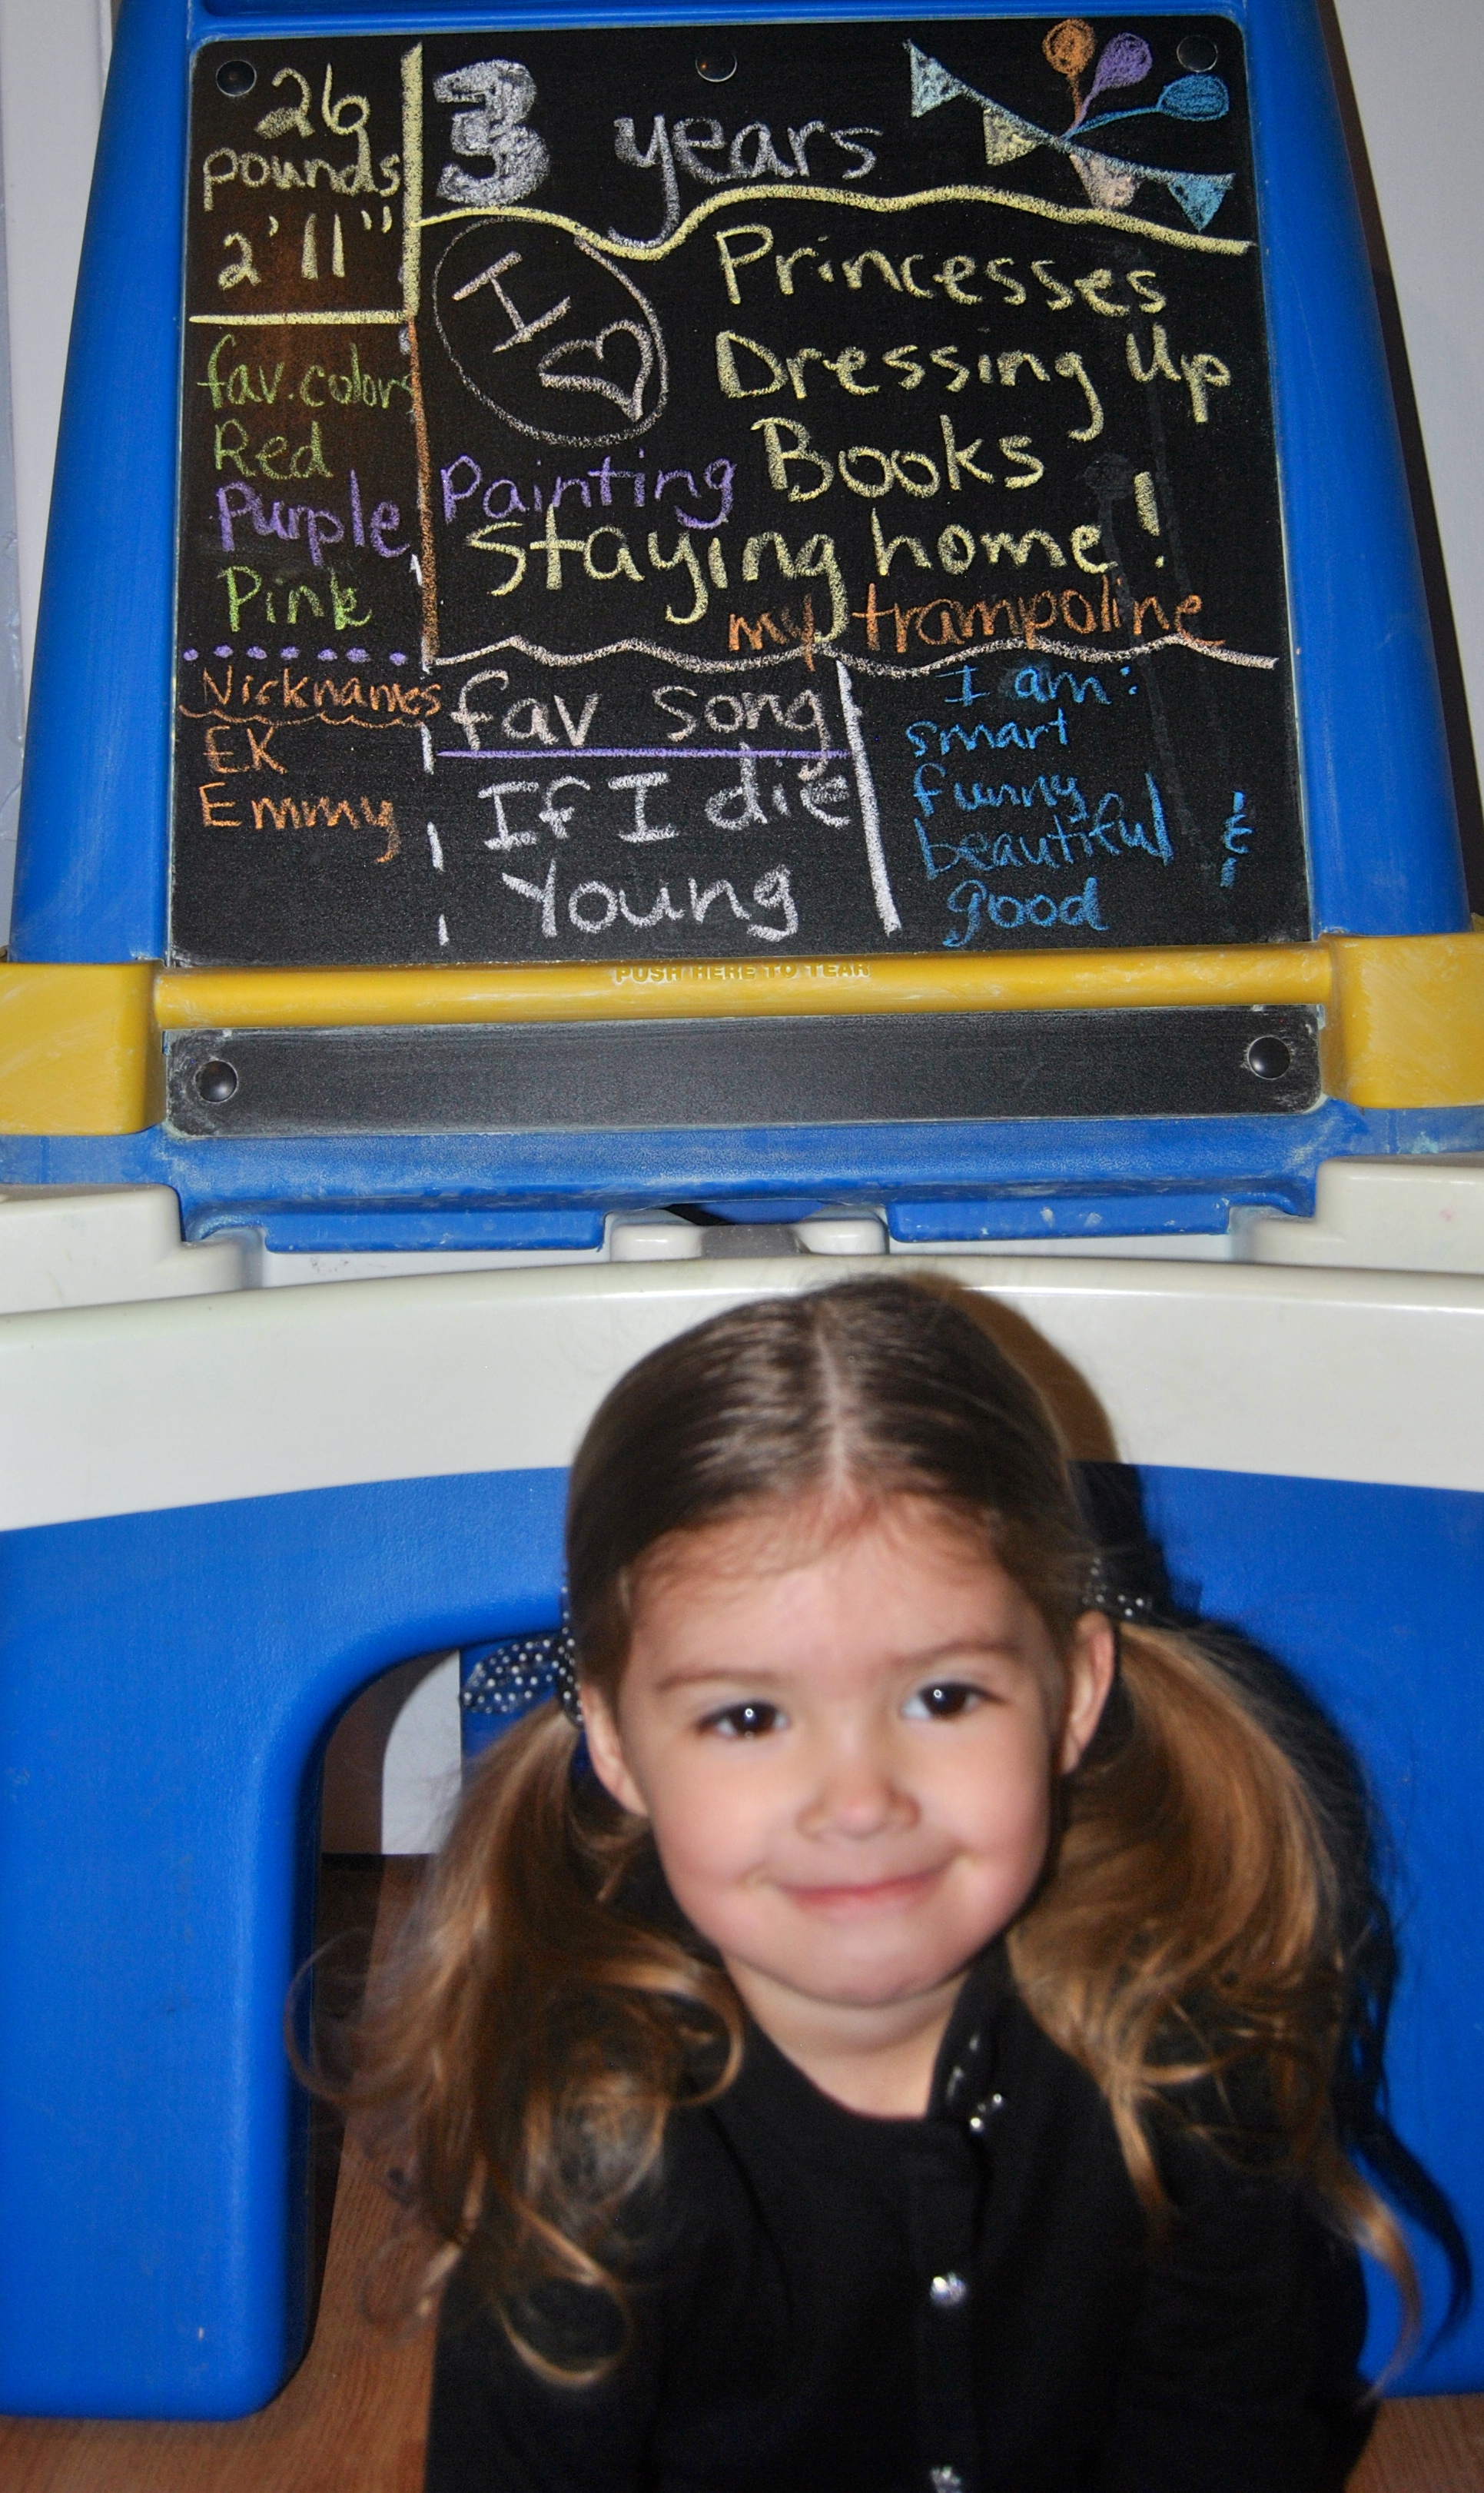 26
pounds
2'11"
3 years
fav. colors
Red
Purple
Pink
I ♡
Princesses
Dressing Up
Books
Painting
Staying home!
my trampoline
Nicknames
EK
Emmy
fav song
If I die
Young
I am:
smart
funny
beautiful &
good
PUSH HERE TO TEAR